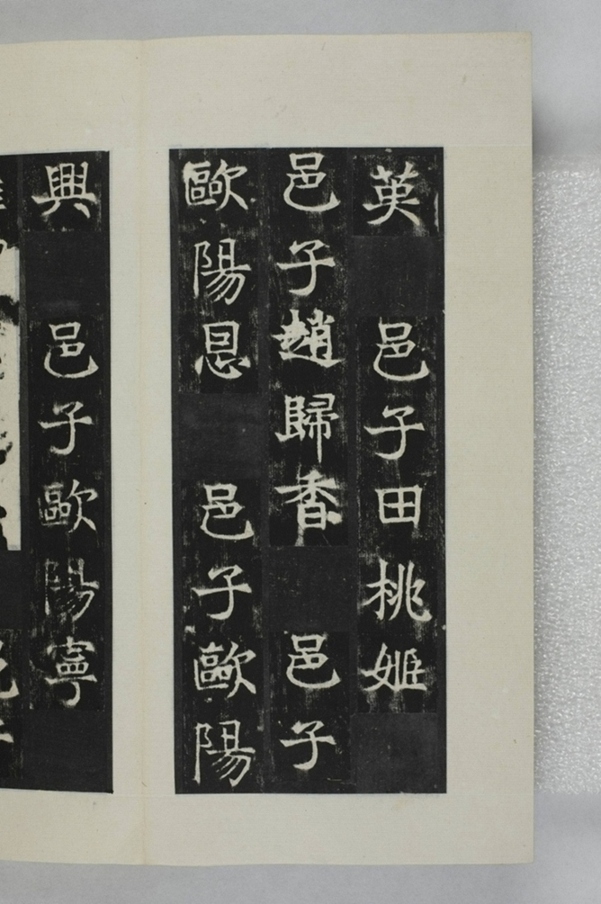 英　邑子田桃姬
邑子趙歸香　邑子
歐陽恩　邑子歐陽
興　邑子歐陽寧